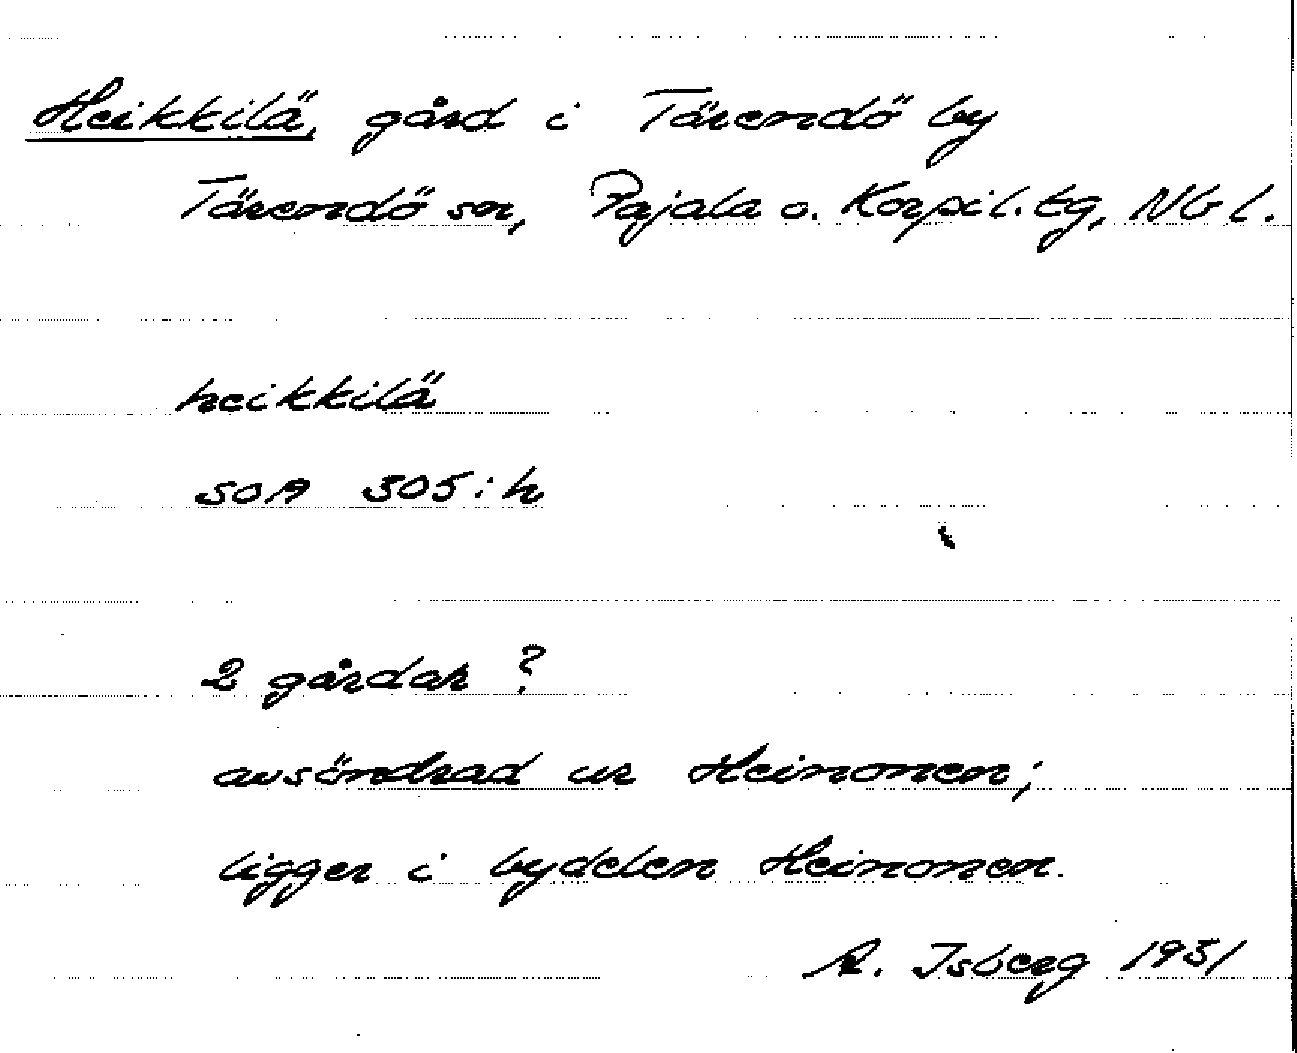 Heikkilä, gård i Tärendö by
Tärendö sn, Pajala o. Korpil. tg, Nb l.
heikkilä
SOA 305:h
2 gårdar ?
avsöndrad ur Heinonen;
ligger i bydelen Heinonen.
R. Isberg 1931